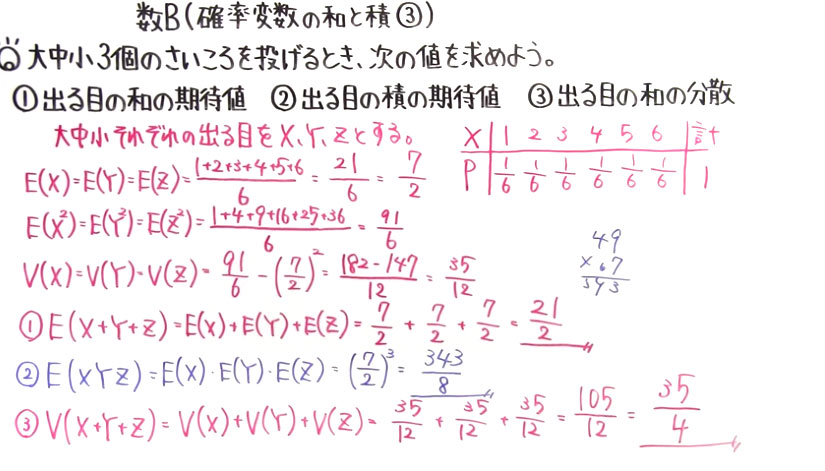 数B(確率変数の和と積③)
Q 大中小3個のさいころを投げるとき、次の値を求めよう。
①出る目の和の期待値 ②出る目の積の期待値 ③出る目の和の分散
大中小それぞれの出る目をX、Y、Zとする。
X 1 2 3 4 5 6 計
P 1/6 1/6 1/6 1/6 1/6 1/6 1
E(X)=E(Y)=E(Z)=(1+2+3+4+5+6)/6=21/6=7/2
E(X²)=E(Y²)=E(Z²)=(1+4+9+16+25+36)/6=91/6
V(X)=V(Y)=V(Z)=91/6-(7/2)²=(182-147)/12=35/12
49
×67
343
①E(X+Y+Z)=E(X)+E(Y)+E(Z)=7/2+7/2+7/2=21/2
②E(XYZ)=E(X)・E(Y)・E(Z)=(7/2)³=343/8
③V(X+Y+Z)=V(X)+V(Y)+V(Z)=35/12+35/12+35/12=105/12=35/4